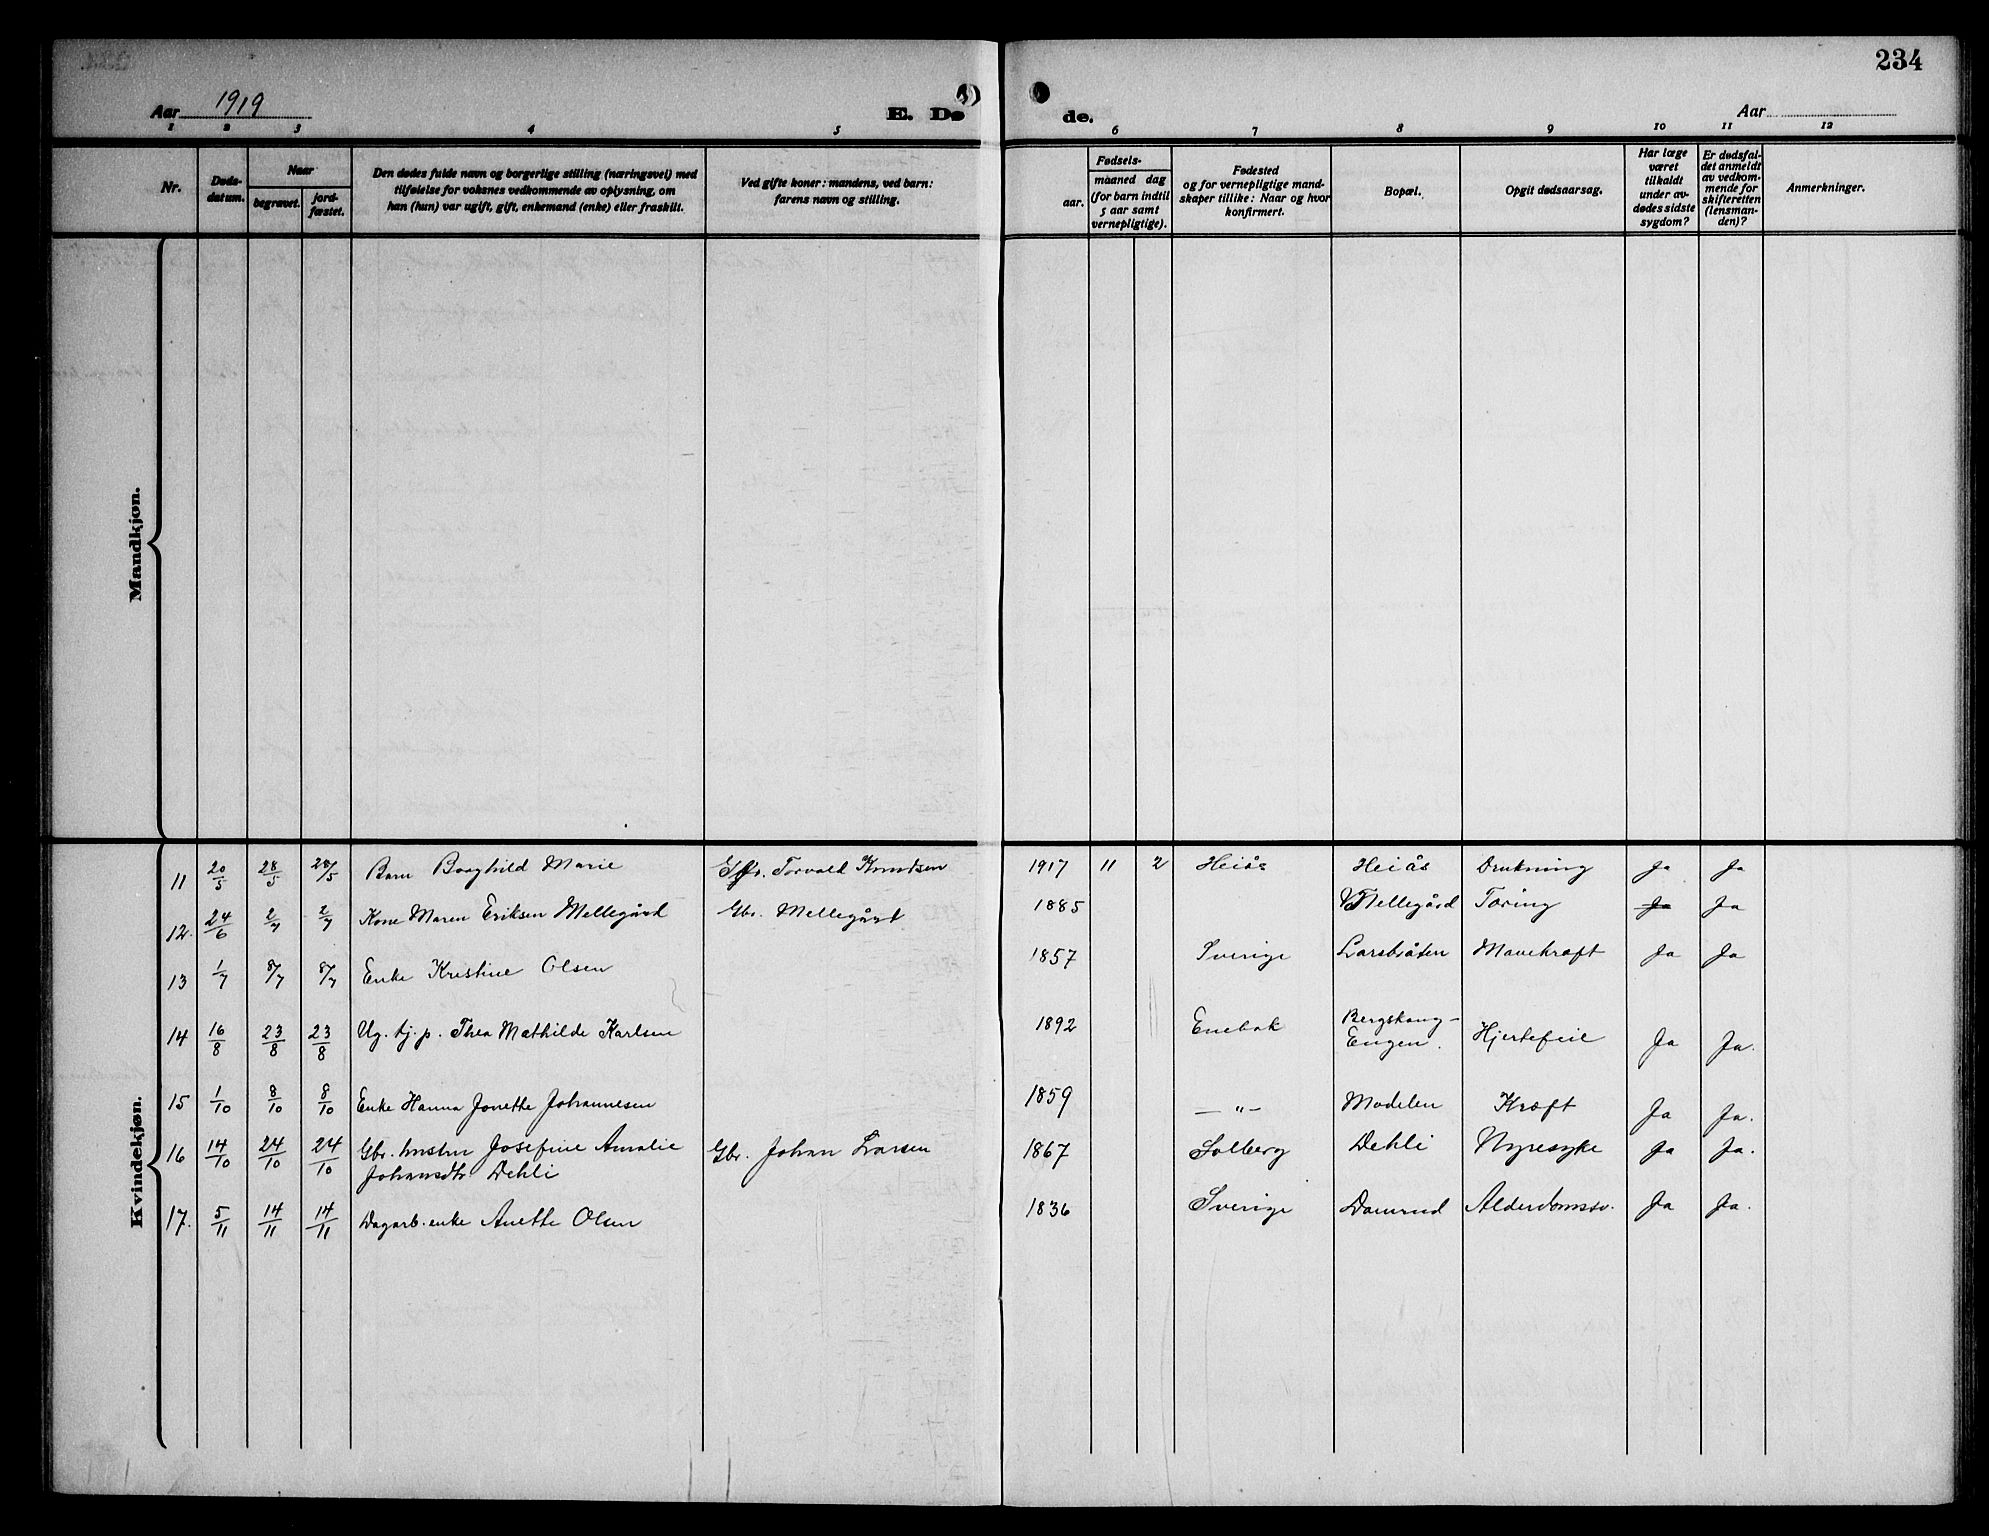 234
Aar 1919
E. Dø
de.
Aar
1 2 3 4 5 6 7 8 9 10 11 12
Nr.
Døds-
datum.
Naar
begravet.
jord-
fæstet.
Den dødes fulde navn og borgerlige stilling (næringsvei) med
tilføielse for voksnes vedkommende av oplysning, om
han (hun) var ugift, gift, enkemand (enke) eller fraskilt.
Ved gifte koner: mandens, ved barn:
farens navn og stilling.
Fødsels-
aar.
maaned dag
(for barn indtil
5 aar samt
vernepligtige).
Fødested
og for vernepligtige mand-
skaper tillike: Naar og hvor
konfirmert.
Bopæl.
Opgit dødsaarsag.
Har læge
været
tilkaldt
under av-
dødes sidste
sygdom?
Er dødsfal-
det anmeldt
av vedkom-
mende for
skifteretten
(lensman-
den)?
Anmerkninger.
Mandkjøn.
Kvindekjøn.
11 20/5 28/5 28/5 Barn Borghild Marie Torvald Knudsen 1917 11 2 Heiås Heiås Drukning Ja Ja
12. 24/6 2/7 2/7 Kone Maren Eriksen Mellegård Gbr. Mellegård 1885 Mellegård Tæring Ja Ja
13 1/7 8/7 8/7 Enke Kristine Olsen 1857 Sverige Larsbråten Mavekræft Ja Ja
14 16/8 23/8 23/8 Ug. tj. p. Thea Mathilde Karlsen 1892 Enebak Bergskaug-
Engen. Hjertefeil Ja Ja.
15 1/10 8/10 8/10 Enke Hanna Jonette Johannesen 1859 — „ — Modelen Kræft Ja Ja.
16 14/10 24/10 24/10 Gbr. hustru Josefine Amalie Gbr. Johan Larsen 1867 Solberg Dehli Nyresyke Ja Ja.
Johansdtr Dehli
17. 5/11 14/11 14/11 Dagarb. enke Anette Olsen 1836 Sverige Damrud Alderdomssv. Ja Ja.